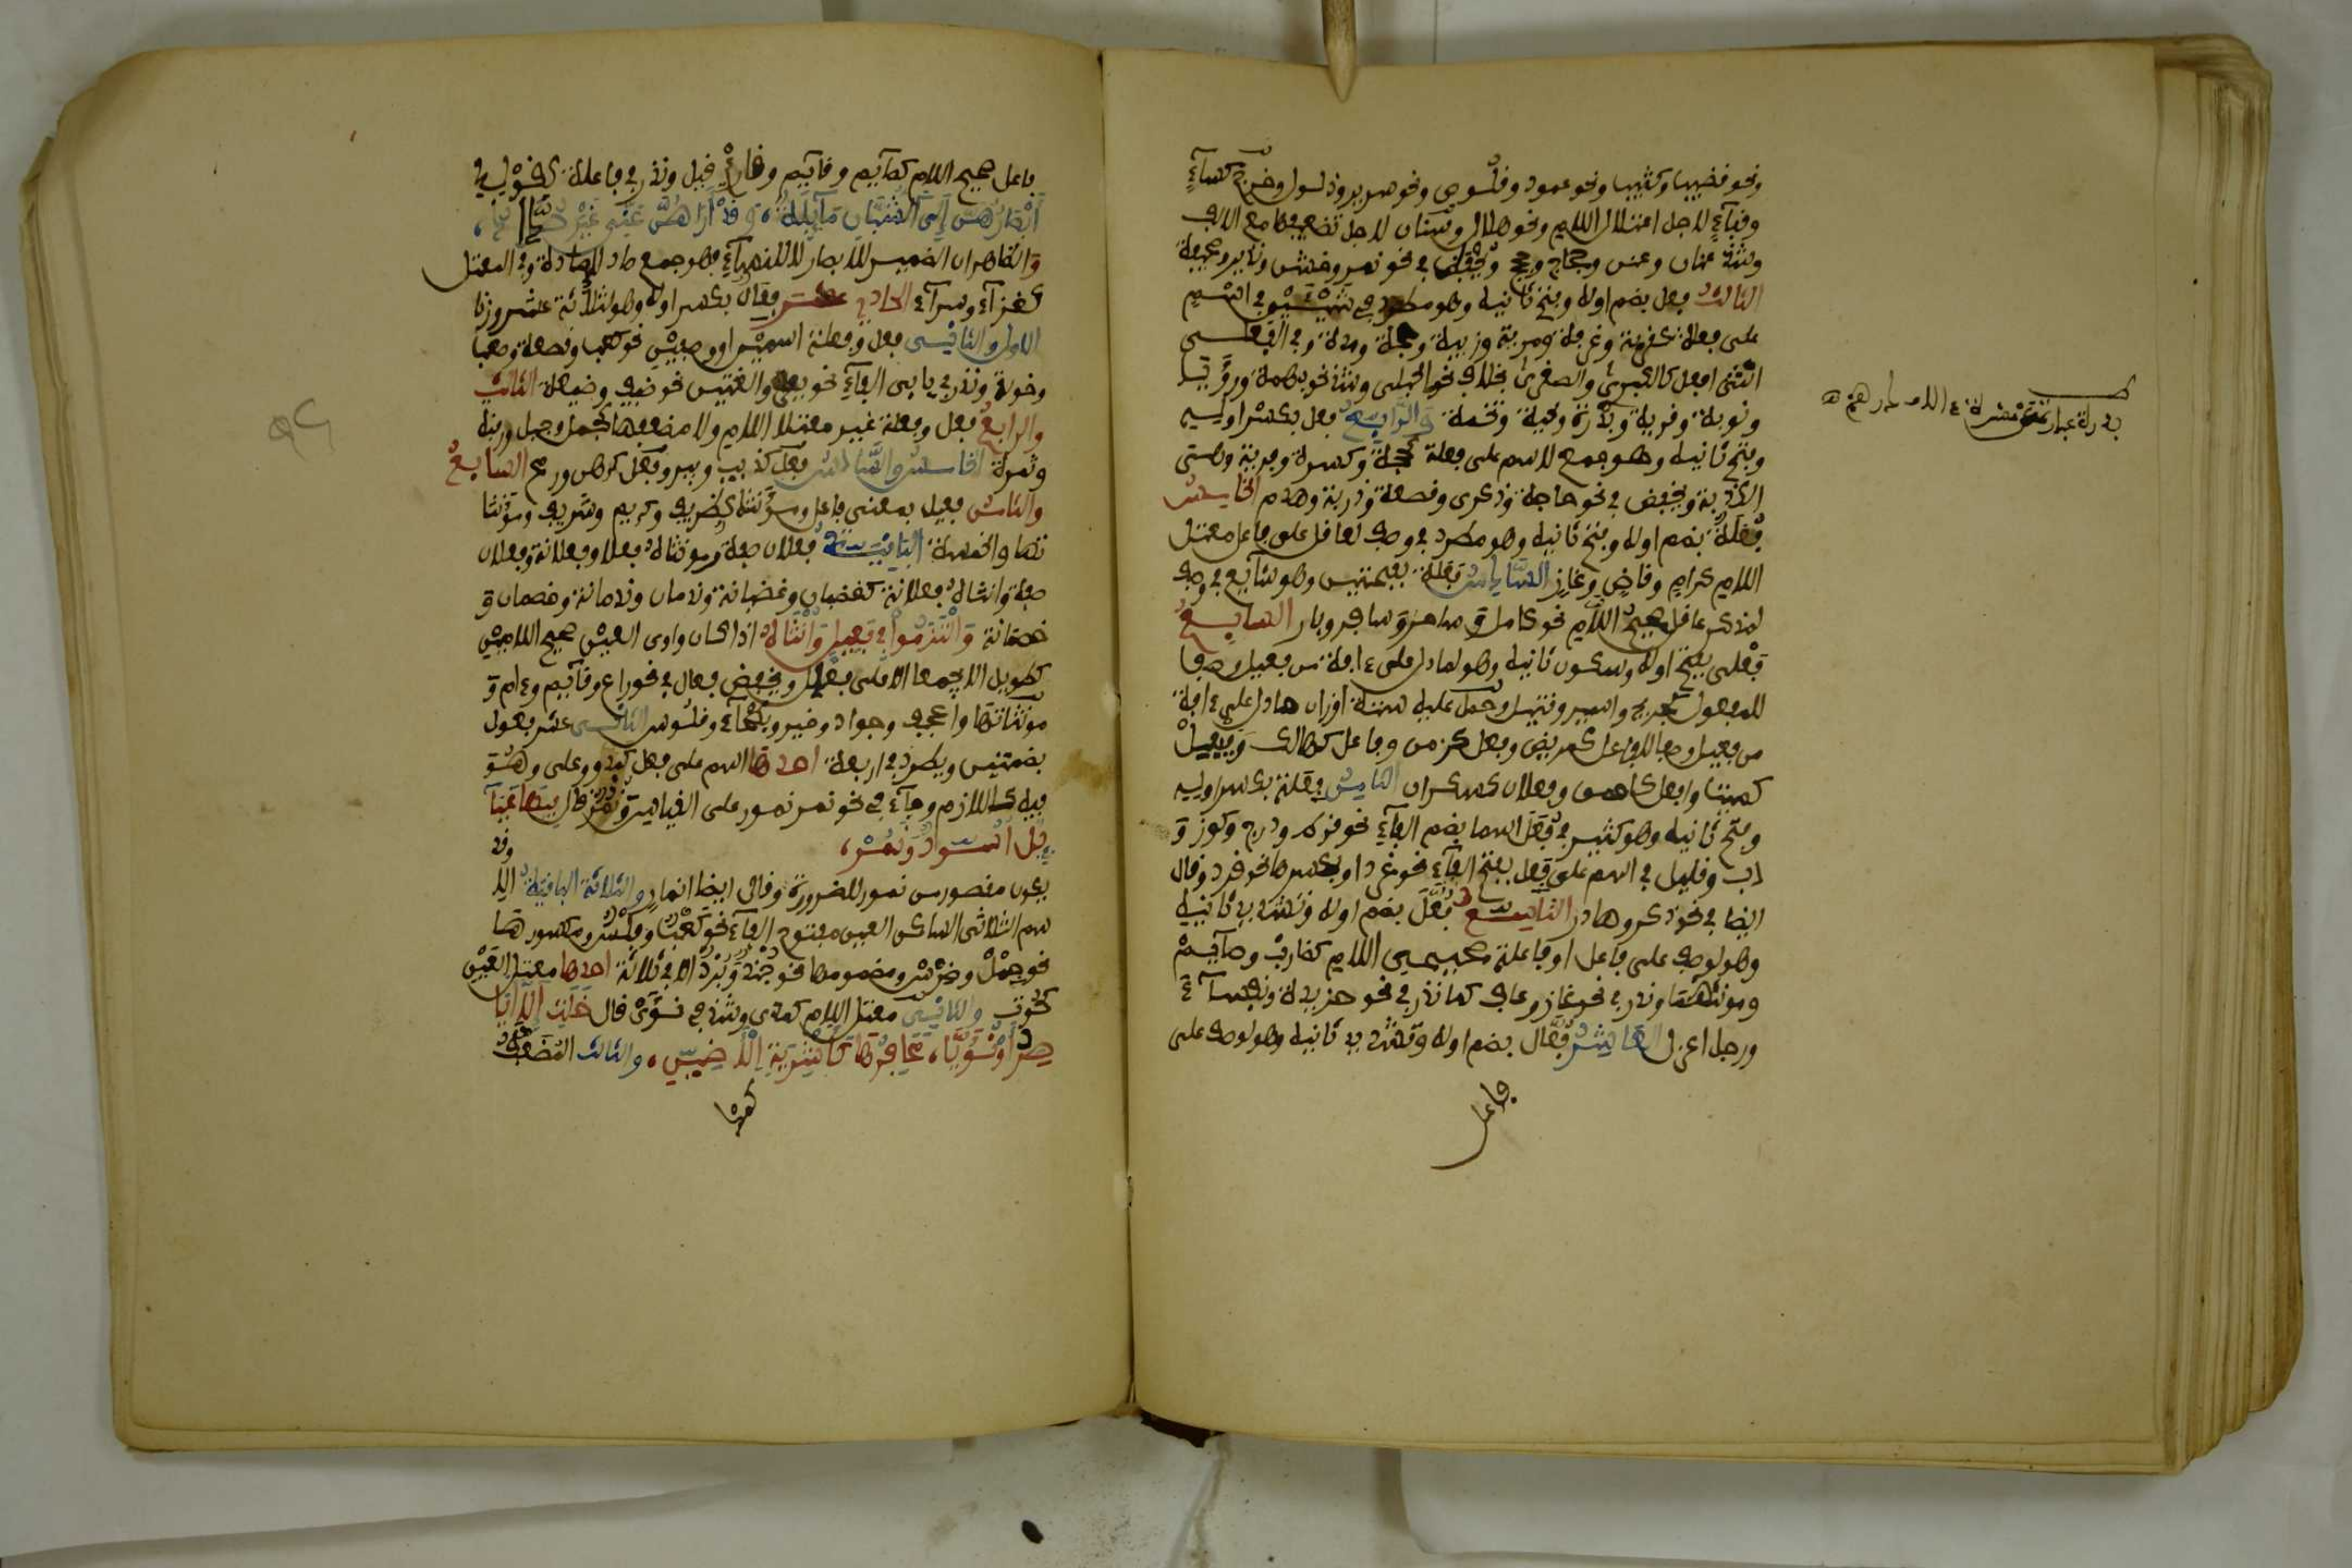 ونحو قضيب وكثيب ونحو عمود وقلوص ونحو سرير وذلول وخرج كساء
وقباء لاجل اعتلال اللام ونحو هلال وسنان لاجل تضعيفها مع الالف
وشذ عنان وعنن وحجاج وحجج ويحفظ في نحو نمر وخشن ونذير وصحيفة
الثالث فعل بضم اوله وفتح ثانيه وهو مطرد في شيئين في اسم
على فعلة كقربة وغرفة ومدية وزبية وحجة ومدة وفي الفعلى
انثى افعل كالكبرى والصغرى بخلاف نحو حبلى وشذ نحو بهمة ورؤيا
ونوبة وقرية وبدرة ولحية وتخمة والرابع فعل بكسر اوله
وفتح ثانيه وهو جمع لاسم على فعلة كحجة وكسرة وفرية وهي
الكذبة ويحفظ في نحو حاجة وذكرى وقصعة وذربة وهدم الخامس
فعلة بضم اوله وفتح ثانيه وهو مطرد في وصف لعاقل على فاعل معتل
اللام كرام وقاض وغاز السادس فعلة بفتحتين وهو شائع في وصف
لمذكر عاقل صحيح اللام نحو كامل وساحر وسافر وبار السابع
فعلى بفتح اوله وسكون ثانيه وهو لما دل على ءافة من فعيل وصفا
للمفعول كجريح واسير وقتيل وحمل عليه ستة اوزان مما دل على ءافة
من فعيل وصفا للفاعل كمريض وفعل كزمن وفاعل كهالك وفيعل
كميت وافعل كاحمق وفعلان كسكران الثامن فعلة بكسر اوله
وفتح ثانيه وهو كثير في فعل اسما بضم الفاء نحو قرط ودرج وكوز و
دب وقليل في اسم على فعل بفتح الفاء نحو غرد او بكسرها نحو قرد وقال
ايضا في نحو ذكر وهادر التاسع فعل بضم اوله وتشديد ثانيه
وهو لوصف على فاعل او فاعلة صحيحي اللام كضارب وصائم
ومؤنثهما وندر في نحو غاز وعاف كما ندر في نحو خريدة ونفساء
ورجل اعزل العاشر فعال بضم اوله وتشديد ثانيه وهو لوصف على
فاعل
فاعل صحيح اللام كصائم وقائم وقارئ قيل وندر في فاعلة كقوله
ابصارهن الى الشبان مائلة، وقد اراهن عني غير صداد،
والظاهر ان الضمير للابصار لا للنساء فهو جمع صاد لا صادة وفي المعتل
كغزاء وسراء الحادي عشر فعال بكسر اوله وهو لثلاثة عشر وزنا
الاول والثاني فعل وفعلة اسمين او وصفين نحو كعب وقصعة وصعب
وخدلة وندر في يائي الفاء نحو يعر والعين نحو ضيف وضيعة الثالث
والرابع فعل وفعلة غير معتلا اللام ولا مضعفها كجمل وجبل ورقبة
وثمرة الخامس والسادس فعل كذئب وبئر وفعل كدهن ورمح السابع
والثامن فعيل بمعنى فاعل ومؤنثه كظريف وكريم وشريف ومؤنثا
تها والخمسة الباقية فعلان صفة ومؤنثاه فعلى وفعلانة وفعلان
صفة وانثاه فعلانة كغضبان وغضبانة وندمان وندمانة وخمصان و
خمصانة والتزموا في فعيل وانثاه اذا كان واوى العين صحيح اللامين
كطويل الا يجمعا الا على فعال ويحفظ فعال في نحو راع وقائم وءام و
مؤنثاتها واعجف وجواد وخير وبطحاء وقلوص الثاني عشر فعول
بضمتين ويطرد في اربعة احدها اسم على فعل ككبد ووعل وهو
فيه كاللازم وجاء في نحو نمر نمور على القياس ونمر قال فيها عياييـ
يل اسود ونمر،
وقد
يكون مقصورا من نمور للضرورة وقال ايضا انمار والثلاثة الباقية الا
سم الثلاثي الساكن العين مفتوح الفاء نحو كعب وفلس ومكسورها
نحو حمل وضرس ومضمومها نحو جند وبرد الا في ثلاثة احدها معتل العين
كحوت والثاني معتل اللام كمدى وشذ في نؤى قال خلت الا ايا
صر او نؤيا، محافرها كاشرية الاضين، والثالث المضعف
كمد